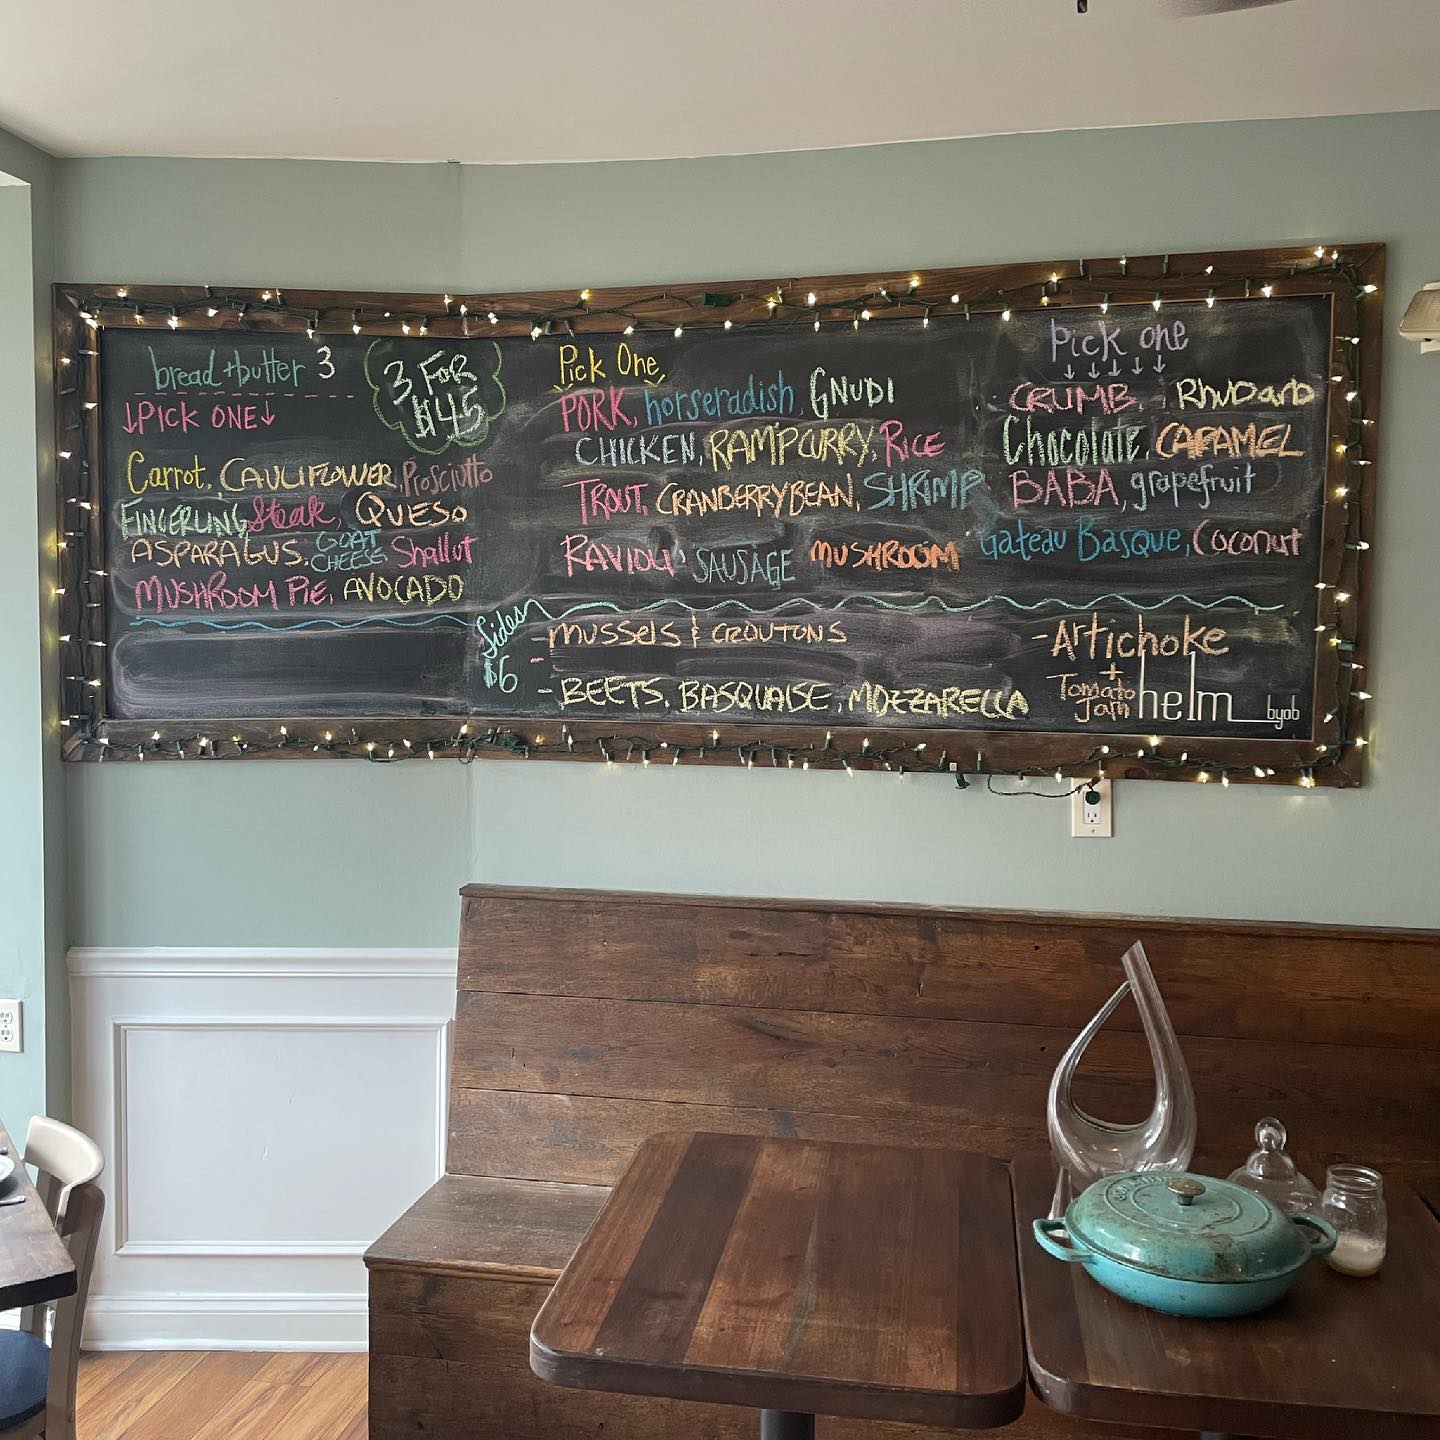 bread + butter 3
3 FOR
$45
↓PICK ONE↓
Carrot, CAULIFLOWER, Prosciutto
FINGERLING Steak, QUESO
ASPARAGUS, GOAT CHEESE Shallot
MUSHROOM PIE, AVOCADO
Pick One
PORK, horseradish, GNUDI
CHICKEN, RAMP CURRY, RICE
TROUT, CRANBERRY BEAN, SHRIMP
RAVIOLI, SAUSAGE MUSHROOM
Pick one
↓ ↓ ↓ ↓ ↓
CRUMB, Rhubarb
Chocolate, CARAMEL
BABA, grapefruit
Gateau Basque, Coconut
Sides
$6
- MUSSELS & CROUTONS
- BEETS, BASQUAISE, MOZZARELLA
- Artichoke
+
Tomato
Jam
helm byob